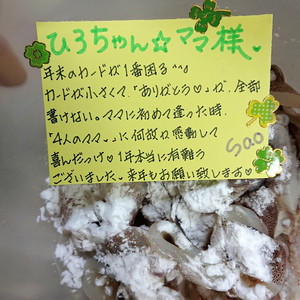 ひろちゃん☆ママ様、
年末のカードが1番困る^^;
カードが小さくて、「ありがとう♡」が、全部
書けない。ママに初めて逢った時、
「4人のママ、」に何故か感動して
喜んだっけ♡1年本当に有難う
ございました、来年もお願い致します♡
Sao